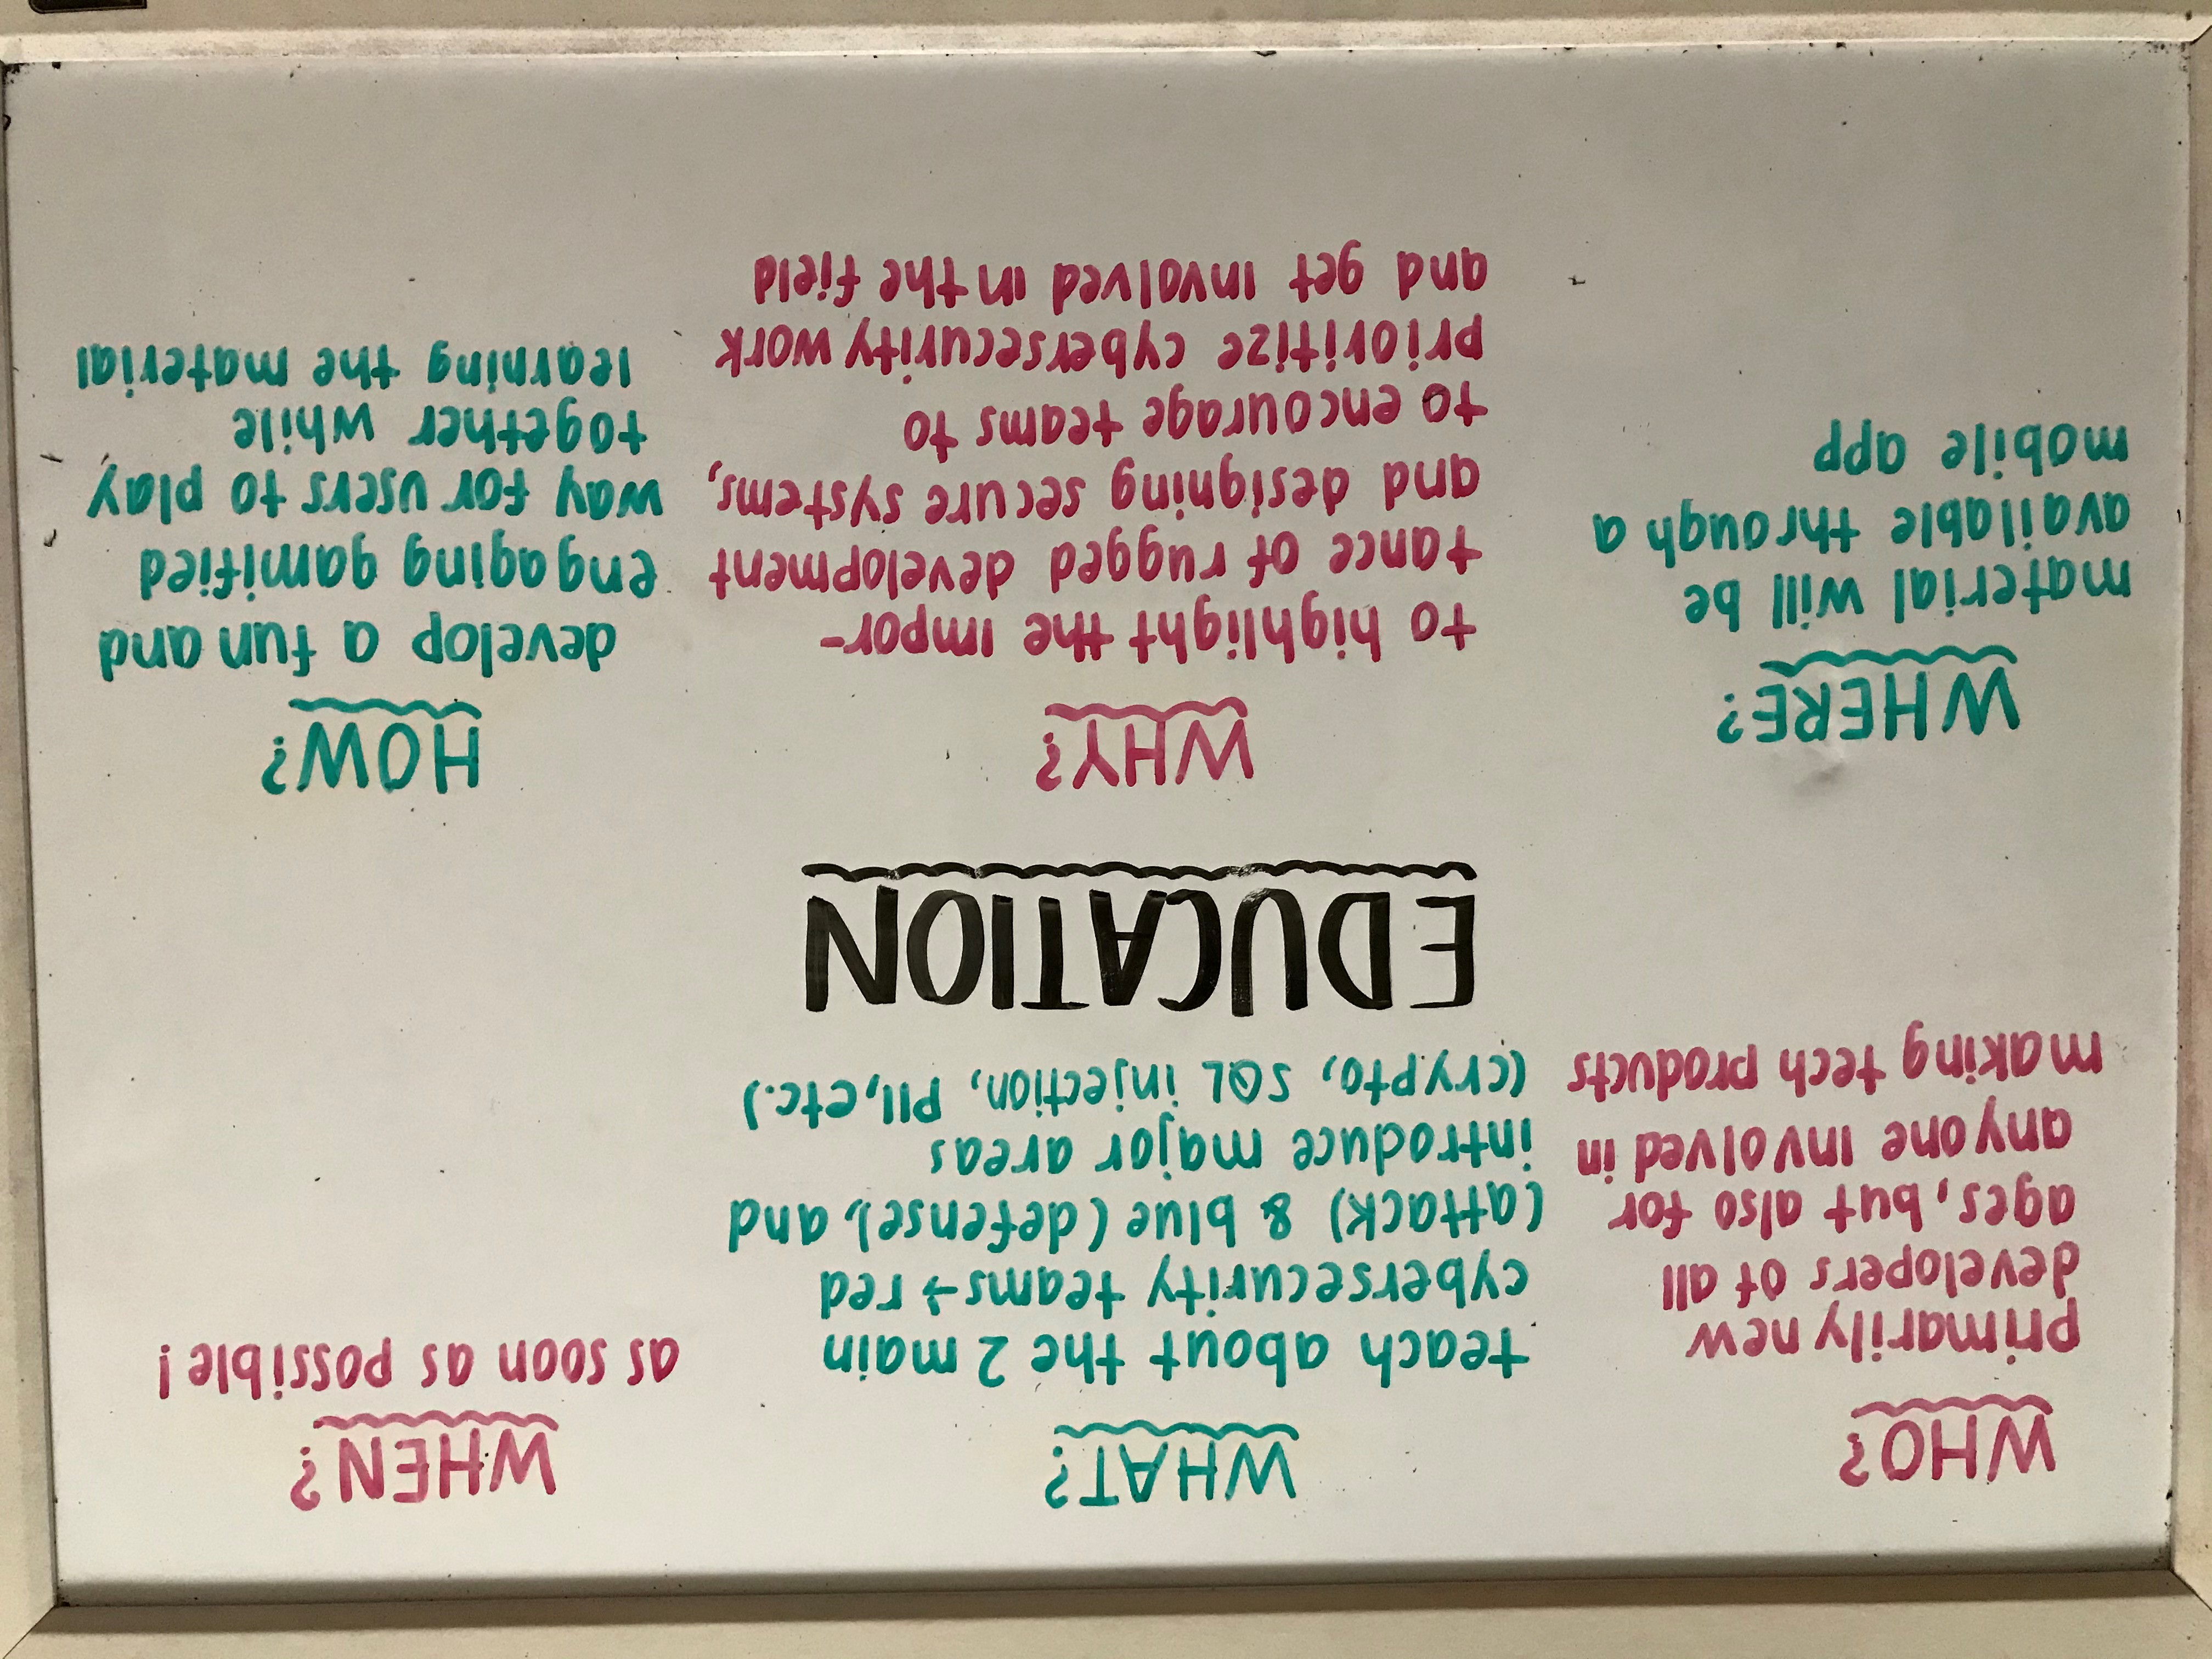 WHO?
primarily new
developers of all
ages, but also for
anyone involved in
making tech products
WHAT?
teach about the 2 main
cybersecurity teams→ red
(attack) & blue (defense), and
introduce major areas
(crypto, SQL injection, PII, etc.)
WHEN?
as soon as possible!
EDUCATION
WHERE?
material will be
available through a
mobile app
WHY?
to highlight the impor-
tance of rugged development
and designing secure systems,
to encourage teams to
prioritize cybersecurity work
and get involved in the field
HOW?
develop a fun and
engaging gamified
way for users to play
together while
learning the material